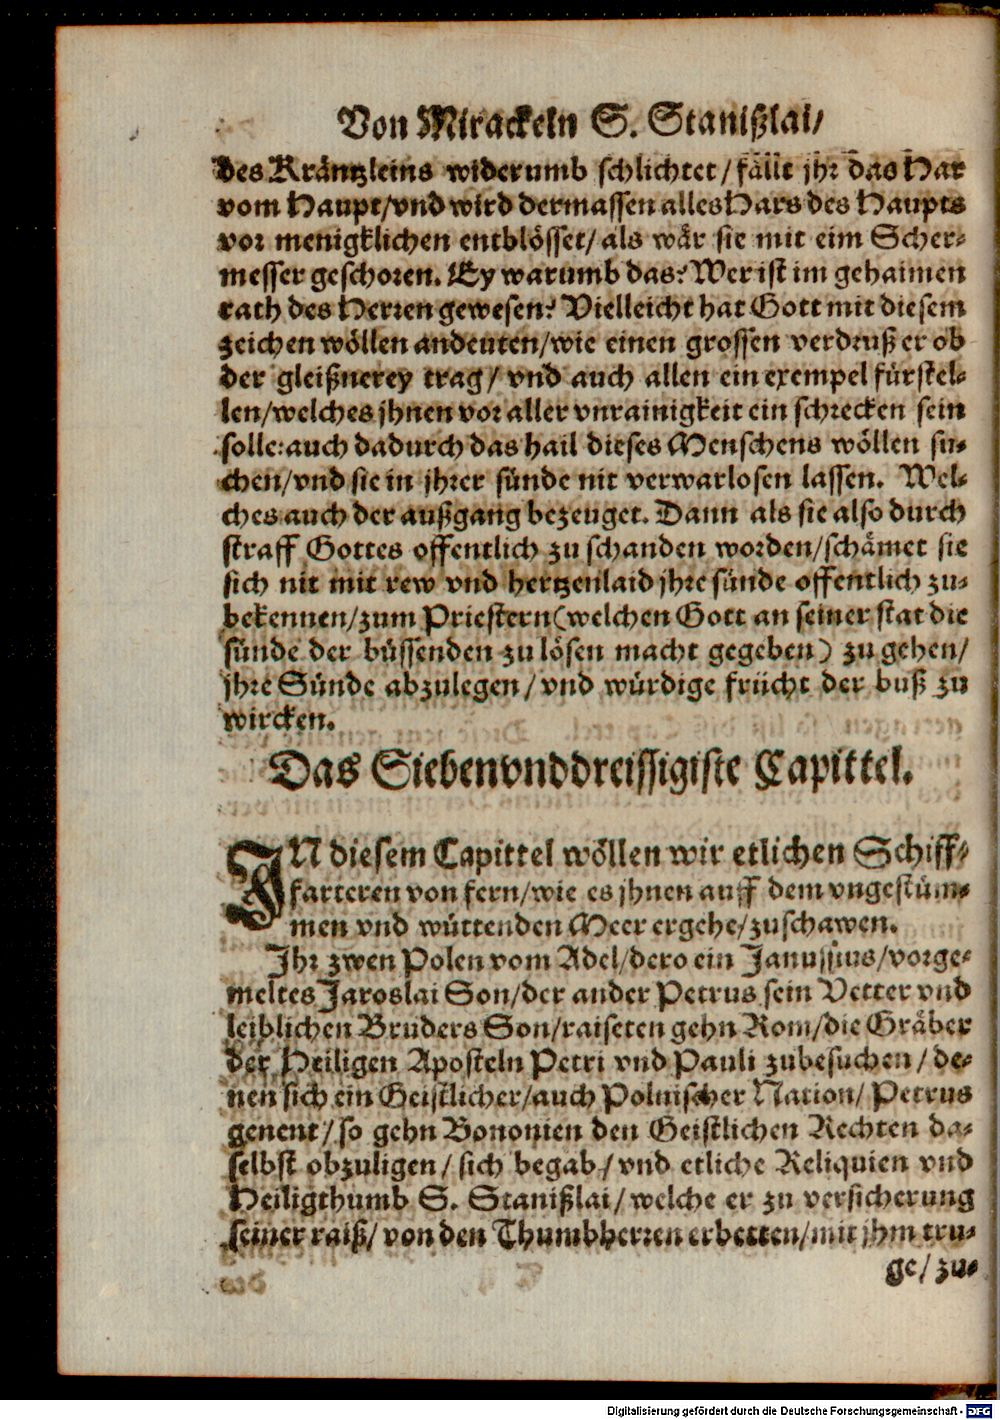 Von Mirackeln S. Stanißlai/
des Kräntzleins widerumb schlichtet/fällt jhr das Har
vom Haupt/vnd wird dermassen alles Hars des Haupts
vor menigklichen entblösset/als wär sie mit eim Scher-
messer geschoren. Ey warumb das? Wer ist im gehaimen
rath des Herren gewesen? Vielleicht hat Gott mit diesem
zeichen wöllen andeuten/wie einen grossen verdruß er ob
der gleißnerey trag/ vnd auch allen ein exempel fürstel-
len/welches jhnen vor aller vnrainigkeit ein schrecken sein
solle: auch dadurch das hail dieses Menschens wöllen su-
chen/vnd sie in jhrer sünde nit verwarlosen lassen. Wel-
ches auch der außgang bezeuget. Dann als sie also durch
straff Gottes offentlich zu schanden worden/schämet sie
sich nit mit rew vnd hertzenlaid jhre sünde offentlich zu-
bekennen/zum Priestern (welchen Gott an seiner stat die
sünde der büssenden zu lösen macht gegeben) zu gehen/
jhre Sünde abzulegen/vnd würdige frücht der buß zu
wircken.
Das Siebenvnddreissigiste Capittel.
IN diesem Capittel wöllen wir etlichen Schiff-
farteren von fern/wie es jhnen auff dem vngestüm-
men vnd wüttenden Meer ergehe/zuschawen.
Ihr zwen Polen vom Adel/dero ein Janussius/vorge-
meltes Jaroslai Son/der ander Petrus sein Vetter vnd
leiblichen Bruders Son/raiseten gehn Rom/die Gräber
der Heiligen Aposteln Petri vnd Pauli zubesuchen/de-
nen sich ein Geistlicher/auch Polnischer Nation/Petrus
genent/so gehn Bononien den Geistlichen Rechten da-
selbst obzuligen/sich begab/vnd etliche Reliquien vnd
Heiligthumb S. Stanißlai/welche er zu versicherung
seiner raiß/von den Thumbherren erbetten/mit jhm tru-
ge/zu-
Digitalisierung gefördert durch die Deutsche Forschungsgemeinschaft - DFG